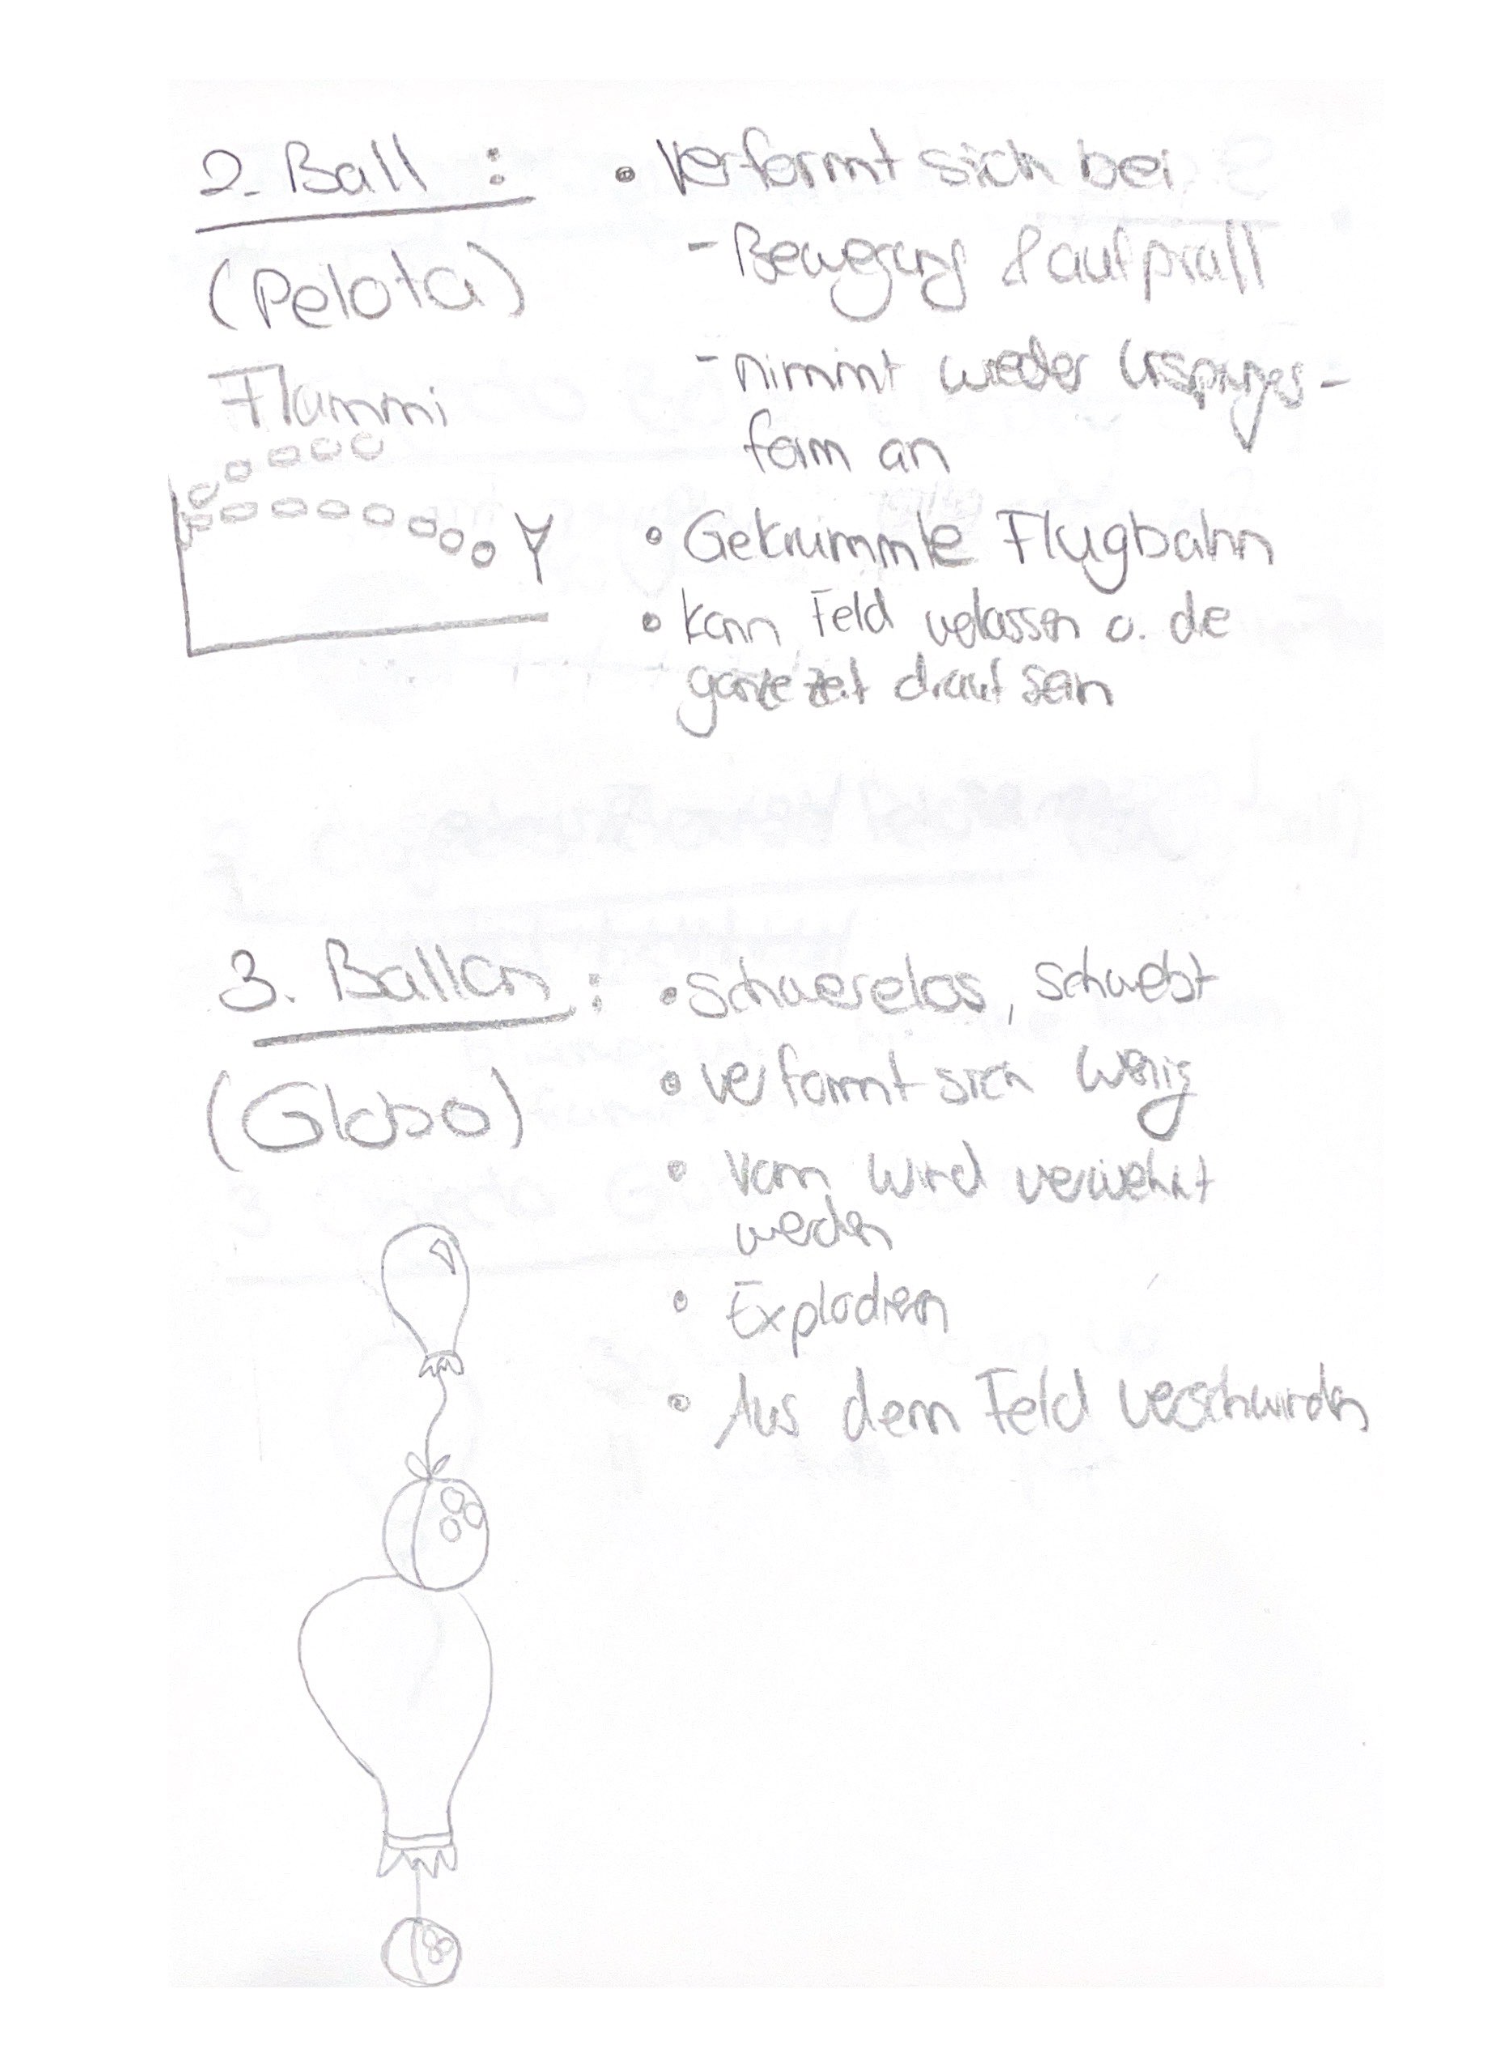 2. Ball :
(Pelota)
Flummi
• Verformt sich bei
- Bewegung & aufprall
- nimmt wieder Ursprungs-
form an
• Gekrümmte Flugbahn
• kann Feld verlassen o. die
ganze zeit drauf sein
3. Ballon :
(Globo)
• Schwerelos, schwebt
• verformt sich wenig
• Vom Wind verweht
werden
• Explodieren
• Aus dem Feld verschwinden